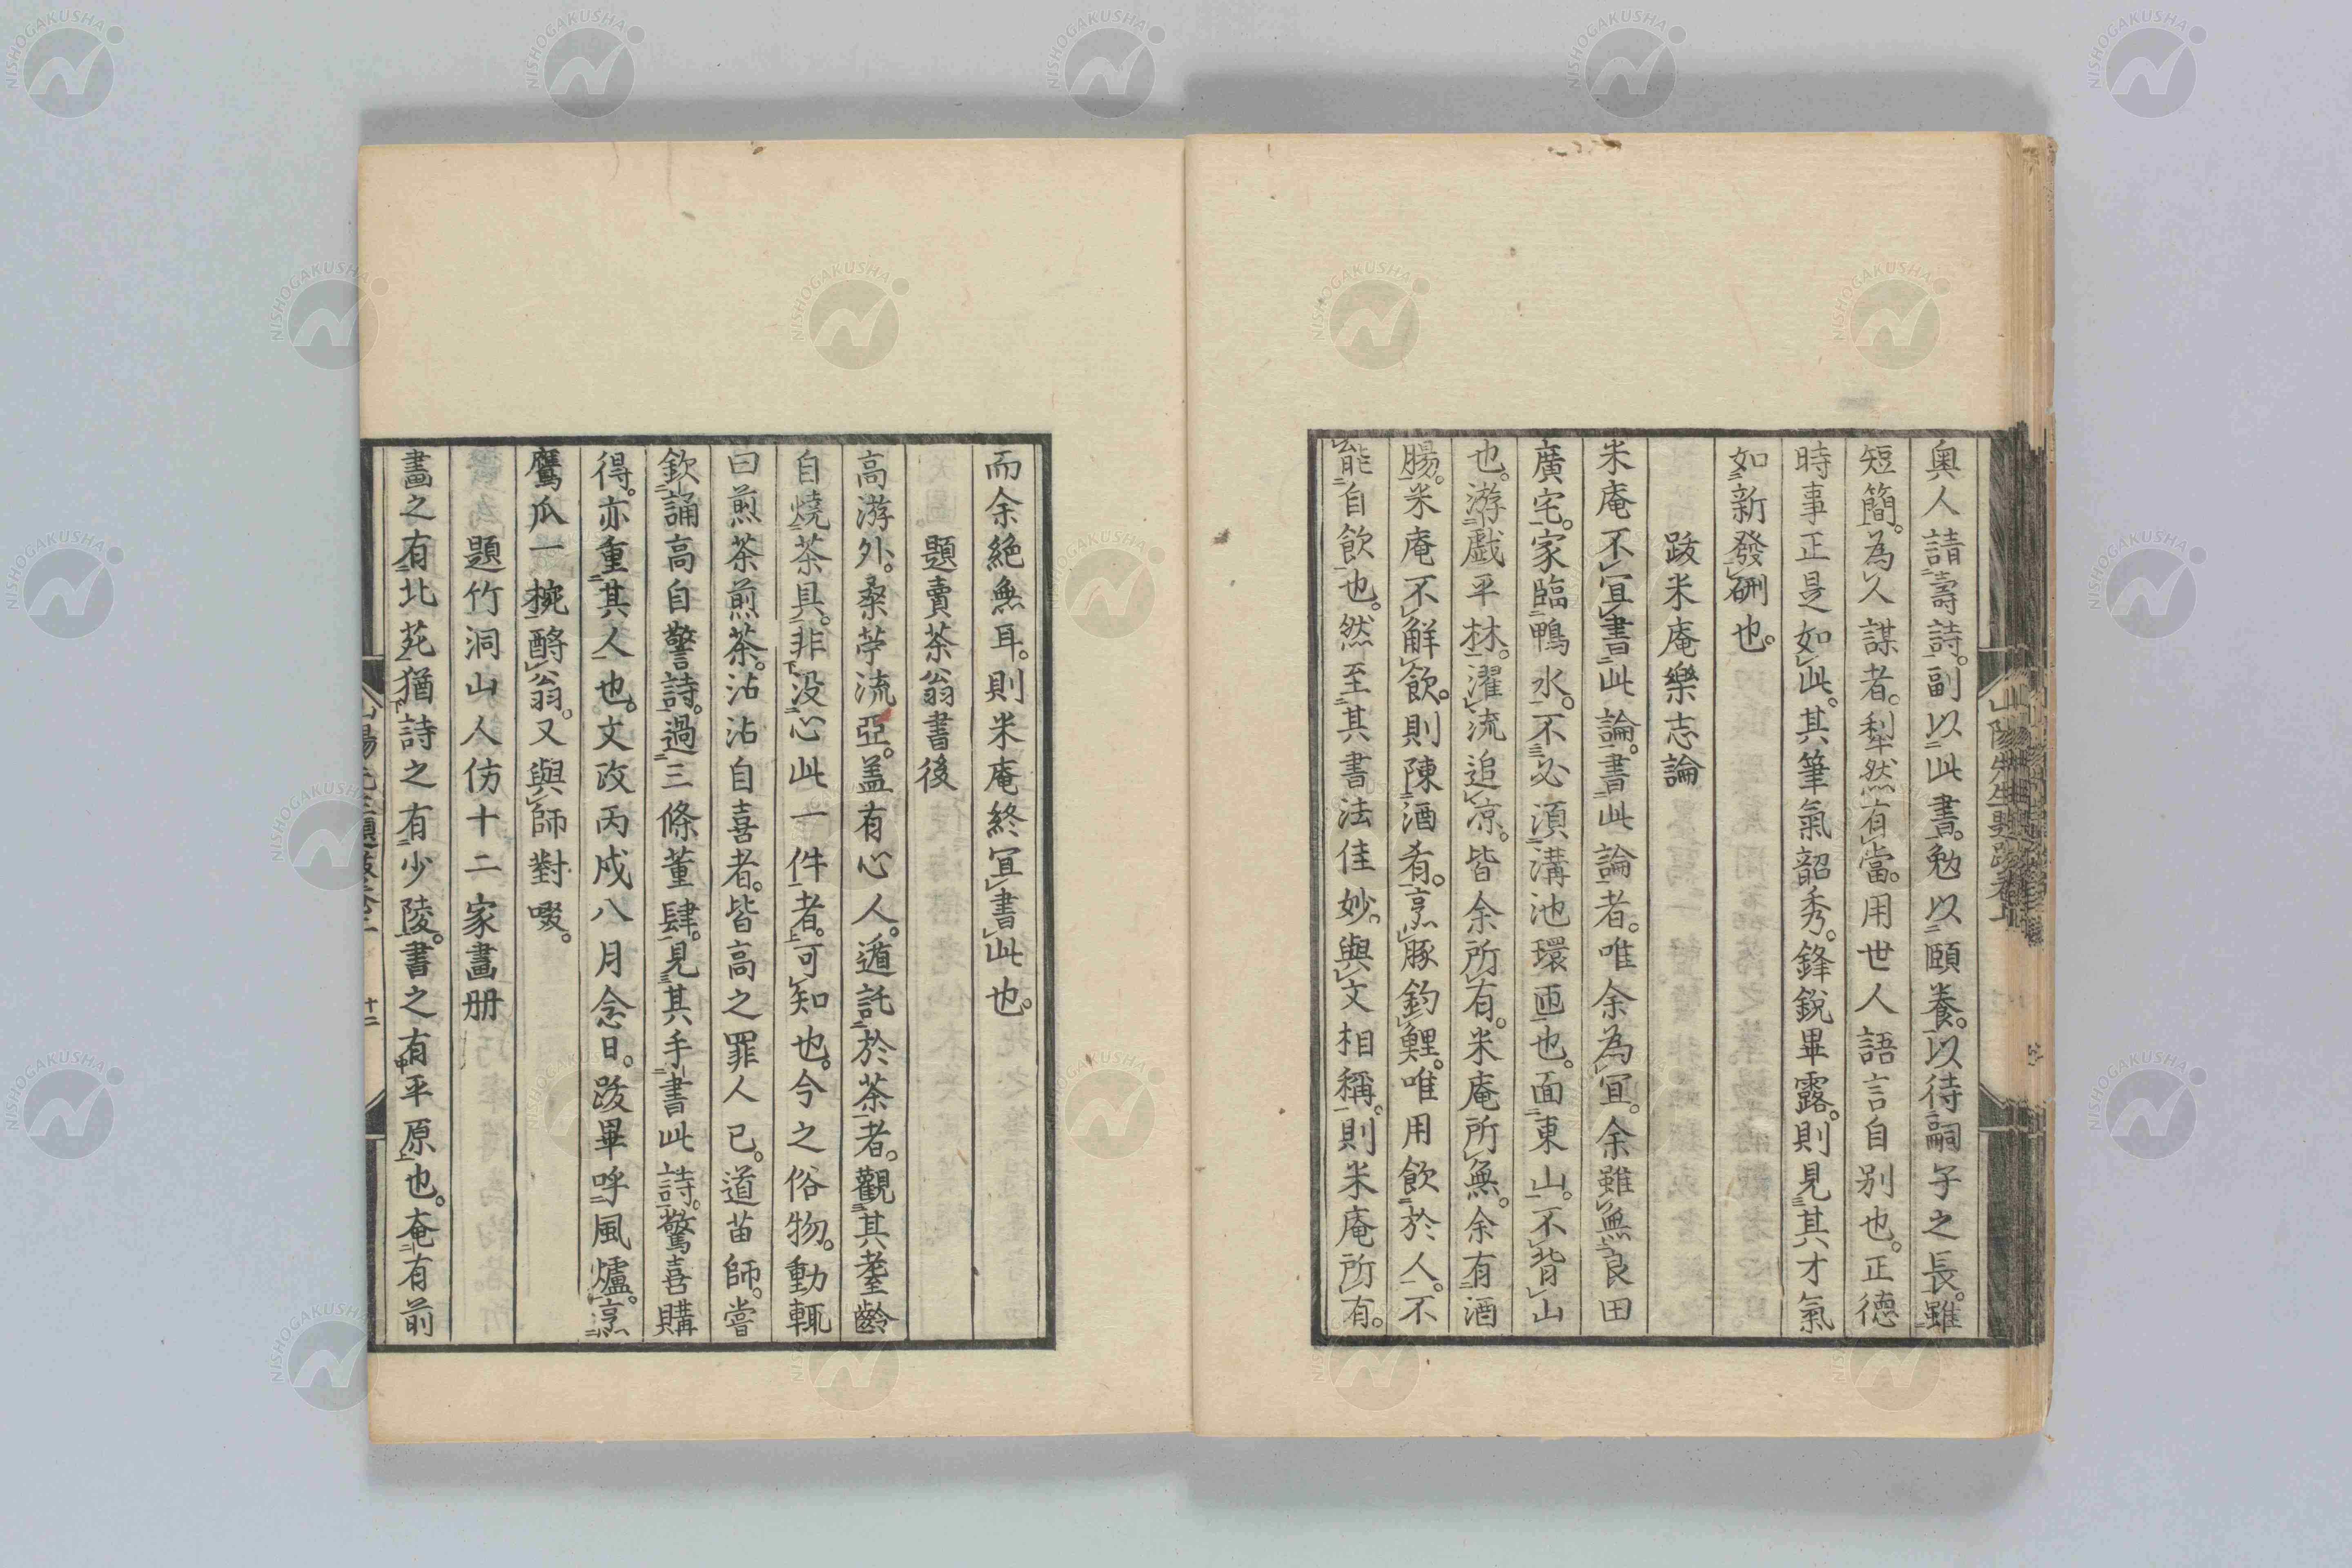 奥人請壽詩。副以此書。勉以頤養。以待嗣子之長。雖
短簡。為久謀者。犁然有當。用世人語言自別也。正德
時事正是如此。其筆氣韶秀。鋒銳畢露。則見其才氣
如新發硎也。
跋米庵樂志論
米庵不宜書此論。書此論者。唯余為宜。余雖無良田
廣宅。家臨鴨水。不必須溝池環匝也。面東山。不背山
也。游戲平林。濯流追涼。皆余所有。米庵所無。余有酒
腸。米庵不解飲。則陳酒肴。烹豚釣鯉。唯用飲於人。不
能自飲也。然至其書法佳妙。與文相稱。則米庵所有。
而余絕無耳。則米庵終宜書此也。
題賣茶翁書後
高游外。桑苧流亞。蓋有心人。遁託於茶者。觀其耋齡
自燒茶具。非没心此一件者。可知也。今之俗物。動輒
曰煎茶煎茶。沾沾自喜者。皆高之罪人已。道苗師。嘗
欽誦高自警詩。過三條董肆。見其手書此詩。驚喜購
得。亦重其人也。文政丙戌八月念日。跋畢呼風爐。烹
鷹爪一椀。酹翁。又與師對啜。
題竹洞山人仿十二家畫册
畫之有北苑。猶詩之有少陵。書之有平原也。奄有前
山陽先生題跋卷上
十二
NISHOGAKUSHA